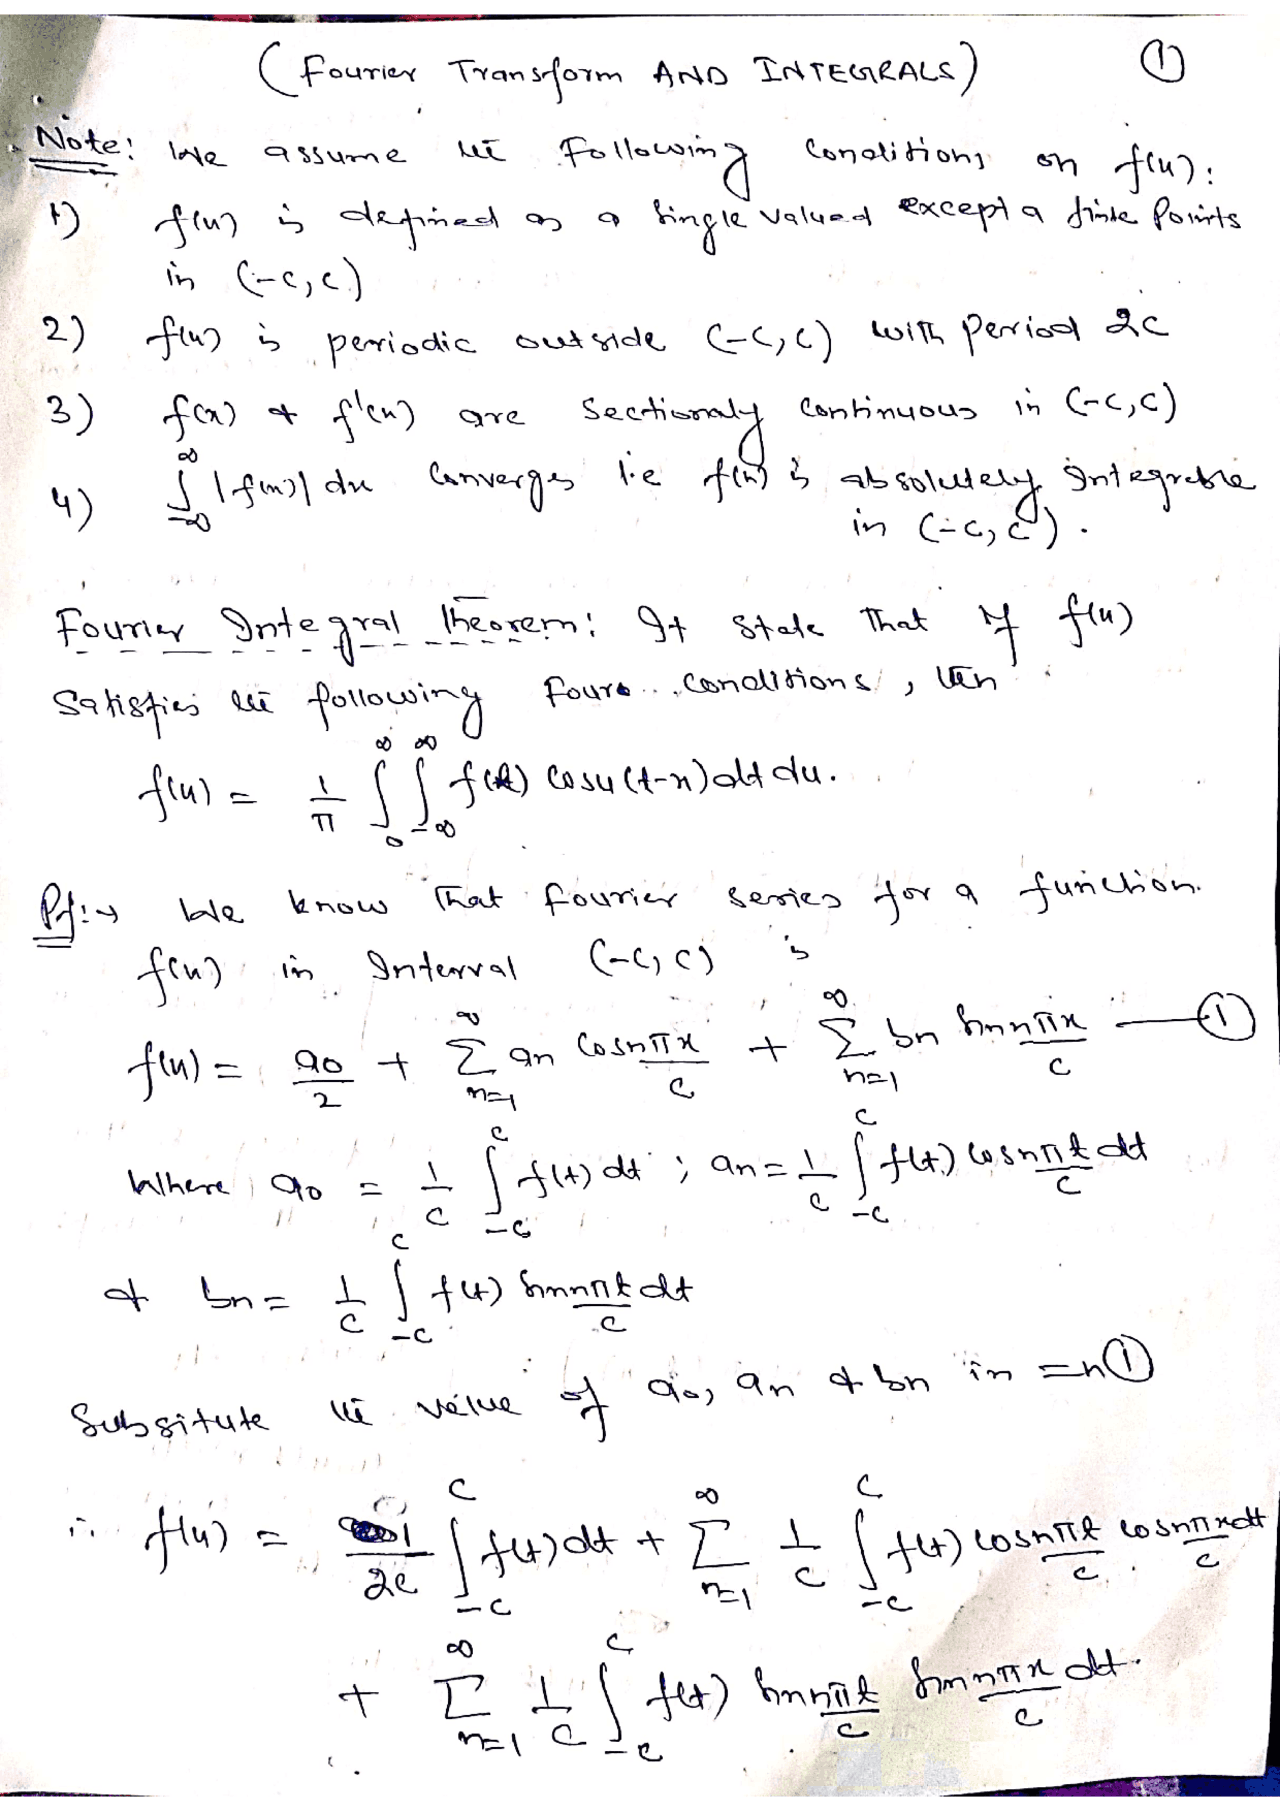 (Fourier Transform AND INTEGRALS) ①
Note: We assume the following conditions on f(x):
1) f(x) is defined as a single valued except a finite Points
in (-c, c)
2) f(x) is periodic outside (-c, c) with Period 2c
3) f(x) & f'(x) are Sectionaly Continuous in (-c, c)
4) ∫_{-∞}^{∞} |f(x)| dx Converges i.e f(x) is absolutely Integrable
in (-c, c).
Fourier Integral Theorem: It state That if f(x)
Satisfies the following four conditions, then
f(x) = 1/π ∫_0^∞ ∫_{-∞}^{∞} f(t) cos u(t-x) dt du.
Pf:→ We know That fourier series for a function.
f(x) in Interval (-c, c) is
f(x) = a0/2 + Σ_{n=1}^{∞} an Cos nπx/c + Σ_{n=1}^{∞} bn Sin nπx/c —①
Where a0 = 1/c ∫_{-c}^{c} f(t) dt ; an = 1/c ∫_{-c}^{c} f(t) cos nπt/c dt
& bn = 1/c ∫_{-c}^{c} f(t) Sin nπt/c dt
Subsitute the value of a0, an & bn in =n ①
∴ f(x) = 1/2c ∫_{-c}^{c} f(t) dt + Σ_{n=1}^{∞} 1/c ∫_{-c}^{c} f(t) cos nπt/c cos nπx/c dt
+ Σ_{n=1}^{∞} 1/c ∫_{-c}^{c} f(t) Sin nπt/c Sin nπx/c dt.